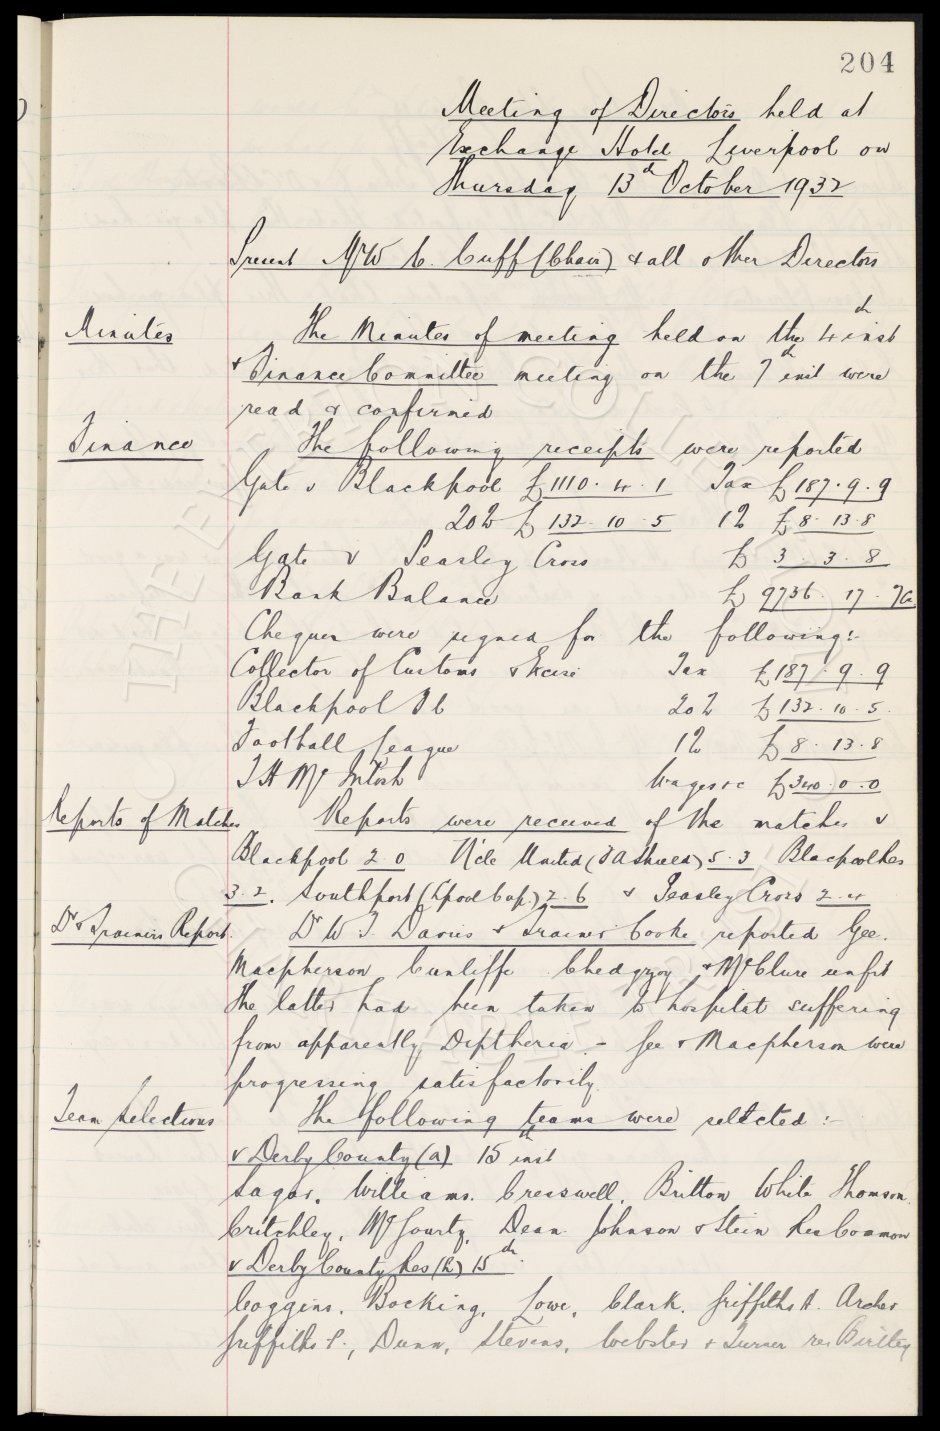 204
Meeting of Directors held at
Exchange Hotel Liverpool on
Thursday 13th October 1932
Present Mr W C. Cuff (Chair) & all other Directors
Minutes
The Minutes of meeting held on the 4th inst
& Finance Committee meeting on the 7th inst were
read & confirmed
Finance
The following receipts were reported
Gate v Blackpool £1110. 4. 1 Tax £187. 9. 9
20% £132. 10. 5 1% £8. 13. 8
Gate v Peasley Cross £3. 3. 8
Bank Balance £9736. 17. 7
Cheques were signed for the following:-
Collector of Customs & Excise Tax £187. 9. 9
Blackpool Fc 20% £132. 10. 5.
Football League 1% £8. 13. 8
T H McIntosh Wages &c £340. 0. 0
Reports of Matches
Reports were received of the matches v
Blackpool 2. 0 N'cle United (FA Shield) 5. 3 Blackpool Res
3. 2. Southport (Lpool Cup.) 2. 6 & Peasley Cross 2. 4
Dr & Trainers Report.
Dr W. T. Davies & Trainer Cooke reported Gee.
Macpherson Cunliffe Chedgzoy & McClure unfit
the latter had been taken to hospital suffering
from apparently Diptheria. - Gee & Macpherson were
progressing satisfactorily.
Team Selections
The following teams were selected :-
v Derby County (a) 15th inst
Sagar. Williams. Cresswell. Britton White Thomson.
Critchley. McGourty, Dean Johnson & Stein Res Common
v Derby County Res (h) 15th.
Coggins. Bocking. Lowe, Clark. Griffiths H. Archer
Griffiths P., Dunn, Stevens, Webster & Turner res Birtley